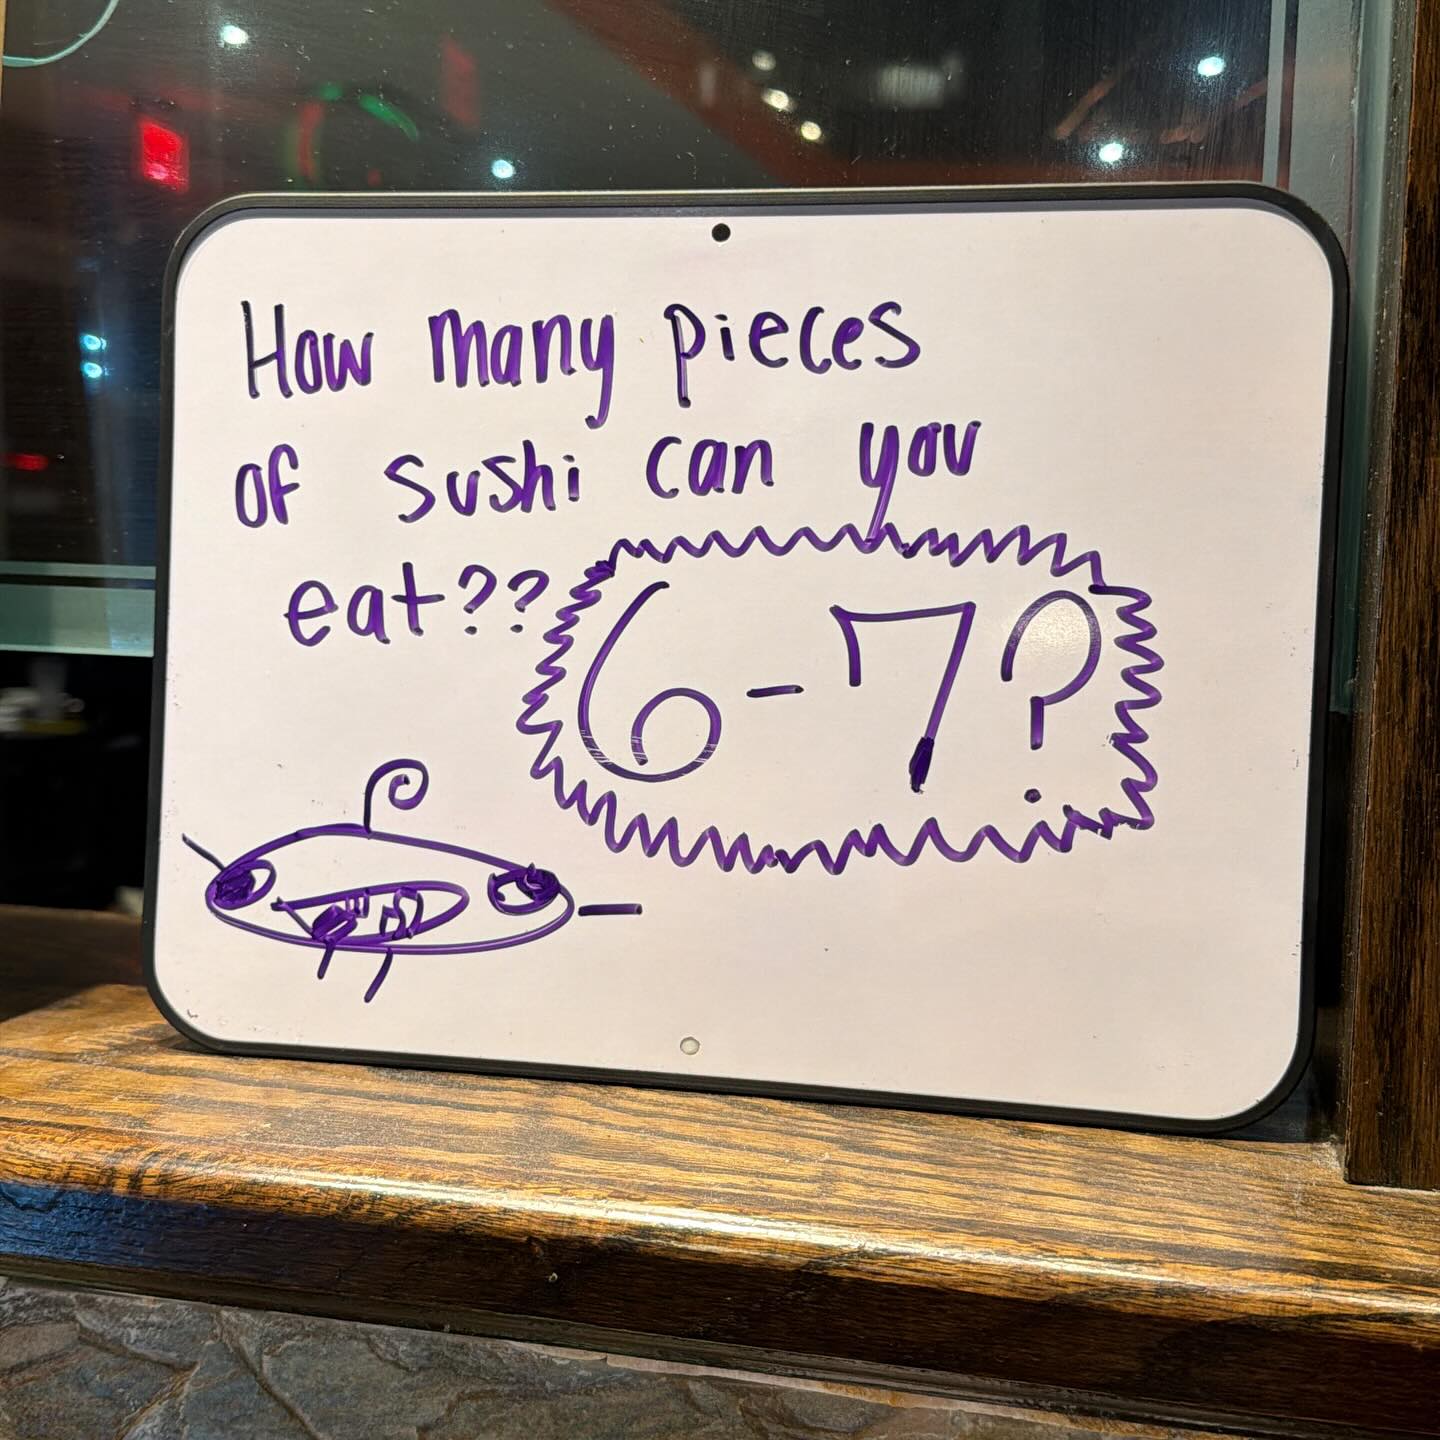 How many pieces
of sushi can you
eat??
6-7?